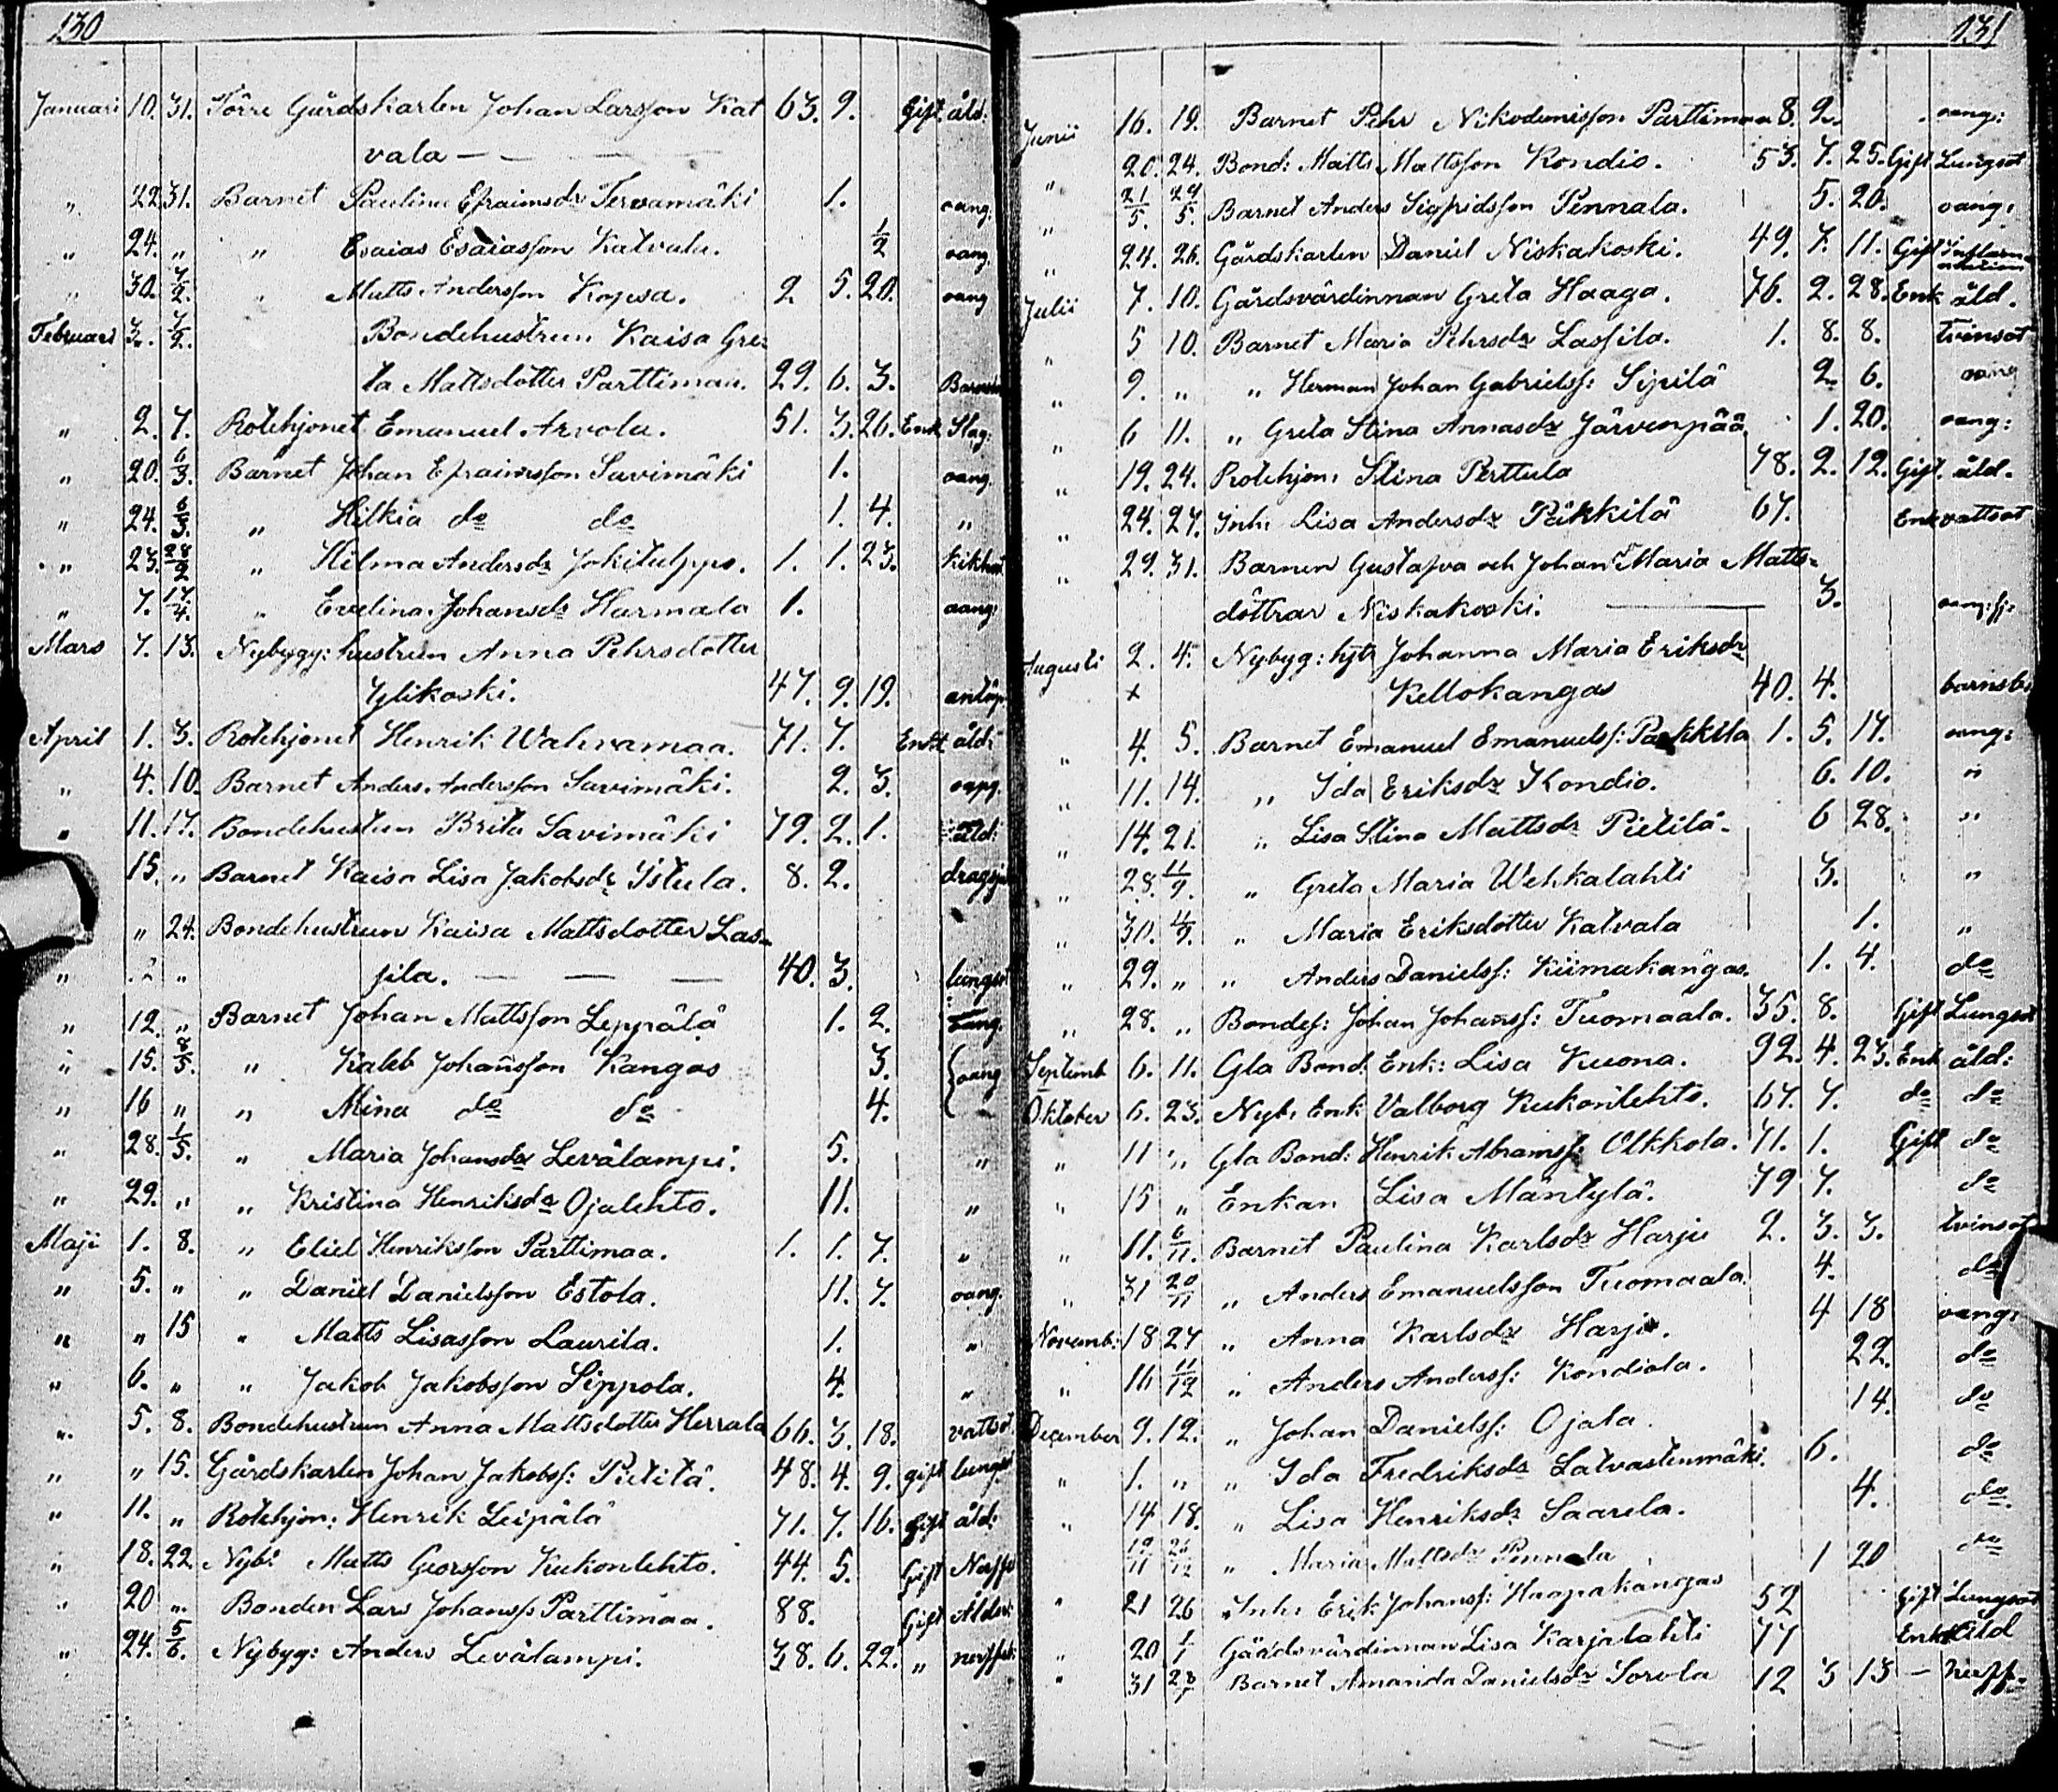 130
Januari 10. 31. Förre Gårdskarlen Johan Larsson Kat 63. 9. Gift. åld:
vala — — — —
" 22 31. Barnet Paulina Efraimsdr Tervamäki 1. oang:
" 24. " " Esaias Esaiasson Katvala. 1/2 oang.
" 30. 7/2. " Matts Andersson Kopsa. 2 5. 20. oang
Februari 3. 7/2. Bondehustrun Kaisa Gre=
ta Mattsdotter Parttimaa. 29. 6. 3.
" 2. 7. Rotehjonet Emanuel Arvola. 51. 3. 26. Enk Slag:
" 20. 6/3. Barnet Johan Efraimsson Savimäki 1. oang.
" 24. 6/3. " Hilkia do do 1. 4. "
" 23. 28/2 " Hilma Andersdr 1. 1. 23. Kikhost
" 7. 17/4. " Evelina Johansdr Harmala 1. oang:
Mars 7. 13. Nybygg: hustrun Anna Pehrsdotter
Ylikoski. 47. 9. 19.
April 1. 3. Rotehjonet Henrik Wahramaa. 71. 7. Enkl åld:
" 4. 10. Barnet Anders Andersson Savimäki. 2. 3. oang.
" 11. 17. Bondehustrun Brita Savimäki 79. 2. 1. åld:
15. " Barnet Kaisa Lisa Jakobsdr Istula. 8. 2.
" 24. Bondehustrun Kaisa Mattsdotter Las=
" " " sila. — — — 40. 3. lungsot
" 12. " Barnet Johan Mattsson Leppälä 1. 2. oang.
" 15. 8/5. " Kaleb Johansson Kangas 3. oang
" 16 " " Mina do do 4.
" 28. 1/5. " Maria Johansdr Levälampi. 5. "
" 29. " " Kristina Henriksdr Ojalehto. 11. "
Maji 1. 8. " Eliel Henriksson Parttimaa. 1. 1. 7. "
" 5. " " Daniel Danielsson Estola. 11. 7. oang.
" " 15 " Matts Lisasson Laurila. 1. "
" 6. " " Jakob Jakobsson Sippola. 4. "
" 5. 8. Bondehustrun Anna Mattsdotter Herrala 66. 3. 18. vattsot
" " 15. Gårdskarlen Johan Jakobss: Pietilä. 48. 4. 9. gift lungsot
" 11. " Rotehjon: Henrik Leipälä 71. 7. 16. gift åld:
" 18. 22 Nyb: Matts Georsson Kukonlehto. 44. 5. Gift
" 20 " Bonden Lars Johanss: Parttimaa. 88. Gift Ålder:
" 24. 5/6. Nybyg: Anders Levälampi. 38. 6. 22. "
131
Junii 16. 19. Barnet Pehr Nikodemisson Parttimaa 8. 2. oang:
" 20. 24. Bond: Matts Mattsson Kondio. 53. 7. 25. Gift Lungsot
" 21/5. 24/5. Barnet Anders Sigfridsson Pennala. 5. 20. oang:
" 24. 26. Gårdskarlen Daniel Niskakoski. 49. 7. 11. Gift
Julii 7. 10. Gårdsvärdinnan Greta Haaga. 76. 2. 28. Enk åld.
" 5 10. Barnet Maria Pehrsdr Lassila. 1. 8. 8. tvinsot
" 9. " " Herman Johan Gabrielss: Sipilä 2. 6. oang
" 6 11. " Greta Stina Annasdr Järvenpää 1. 20. oang:
" 19. 24. Rotehjon: Stina Perttula 78. 2. 12. Gift. åld.
" 24. 27. Inh: Lisa Andersdr Päkkilä 67. Enk vattsot
" 29. 31. Barnen Gustafva och Johan Maria Matts=
döttrar Niskakoski. — 3.
Augusti 2. 4. Nybyg: hjtr Johanna Maria Eriksdr
+ Kellokangas 40. 4. barnsb:
" 4. 5. Barnet Emanuel Emanuelss: Pakkila 1. 5. 17. oang:
" 11. 14. " Ida Eriksdr Kondio. 6. 10. "
" 14. 21. " Lisa Stina Mattsdr Pietilä. 6 28. "
" 28. 11/9. " Greta Maria Wehkalahti 3. "
" 30. 4/9. " Maria Eriksdotter Katvala 1. "
" 29. " " Anders Danielss: Kiimakangas. 1. 4. do
" 28. " Bondes: Johan Johanss: Tuomaala. 35. 8. Gift Lungsot
Septemb 6. 11. Gla Bond: Enk: Lisa Kuona. 92. 4. 23. Enk åld:
Oktober 6. 23. Nyb: Enk Valborg Kukonlehto. 67. 7. do do
" 11 " Gla Bond: Henrik Abramss: Olkkola. 71. 1. Gift do
" 15 " Enkan Lisa Mäntylä. 79 7. do
" 11. 6/11. Barnet Paulina Karlsdr Harju 2. 3. 3. tvinsot
" 31 20/11 " Anders Emanuelsson Tuomaala. 4. do
Novemb: 18 27 " Anna Karlsdr Harju. 4 18 oang:
" 16 11/12 " Anders Anderss: Kondiola. 22. do
December 9. 12. " Johan Danielss: Ojala. 14. do
" 1. " " Ida Fredriksdr Latvastenmäki. 6. do
" 14 18. " Lisa Henriksdr Saarela. 4. do
19/11 26/12 " Maria Mattsdr Pennala 1 20 do
" 21 26 Inh: Erik Johanss: Haapakangas 52 Gift Lungsot
" 20 1/1 Gårdsvärdinnan Lisa Karjalahti 77 Enk Åld
" 31 28/1 Barnet Amanda Danielsdr Sorola 12 3 13 —